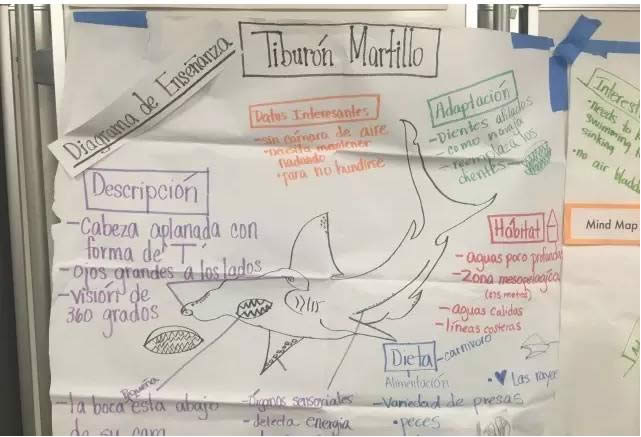 Diagrama de Enseñanza
Tiburón Martillo
Datos Interesantes
-sin cámara de aire
•necesita mantener
nadando
•para no hundirse
Adaptación
-Dientes afilados
como navaja
-reemplaza los
dientes
Descripción
-Cabeza aplanada con
forma de "T"
-ojos grandes a los lados
-visión de
360 grados
Hábitat
-aguas poco profundas
-Zona mesopelágica
(275 metros)
-aguas calidas
-líneas costeras
Dieta -carnívoro
Alimentación
•♥ Las rayas
-Variedad de presas
•peces
Pequeña
-la boca está abajo
de su cara
-Órganos sensoriales
-detecta energía
Interes
•needs to
swimming
sinking
•no air bladd
Mind Map